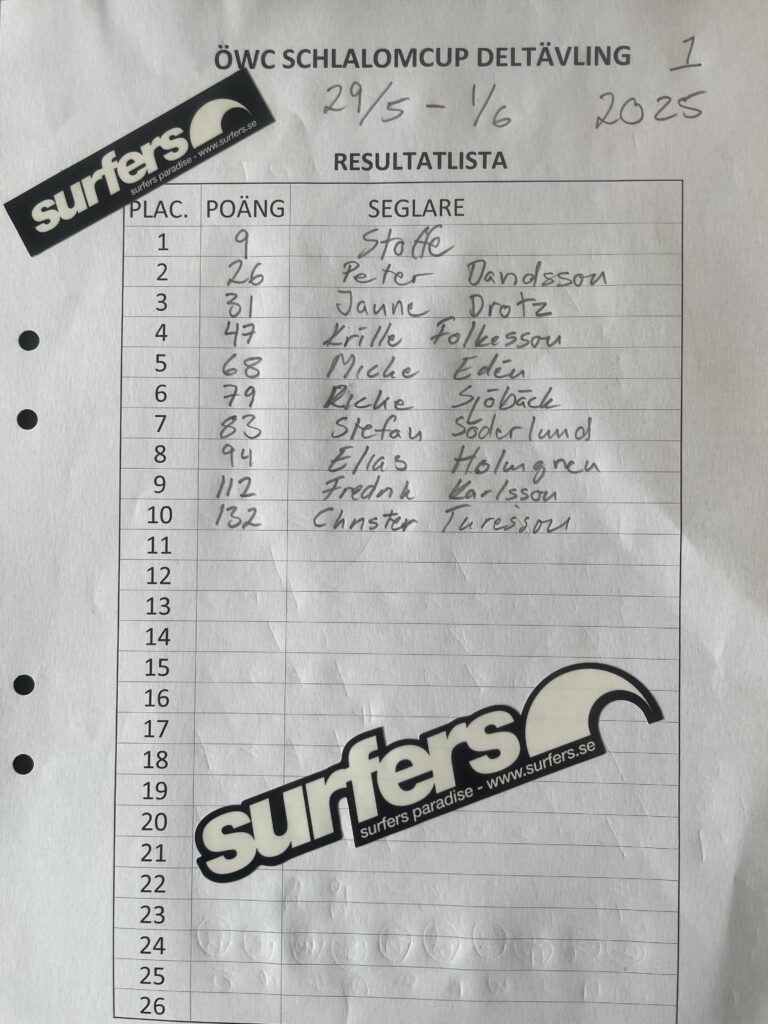 ÖWC SCHLALOMCUP DELTÄVLING 1
29/5 - 1/6 2025
surfers
surfers paradise - www.surfers.se
RESULTATLISTA
PLAC. POÄNG SEGLARE
1 9 Stoffe
2 26 Peter Davidsson
3 31 Janne Drotz
4 47 Krille Folkesson
5 68 Micke Edén
6 79 Ricke Sjöbäck
7 83 Stefan Söderlund
8 94 Elias Holmgren
9 112 Fredrik Karlsson
10 132 Christer Turesson
11
12
13
14
15
16
17
18
19
20
21
22
23
24
25
26
surfers
surfers paradise - www.surfers.se